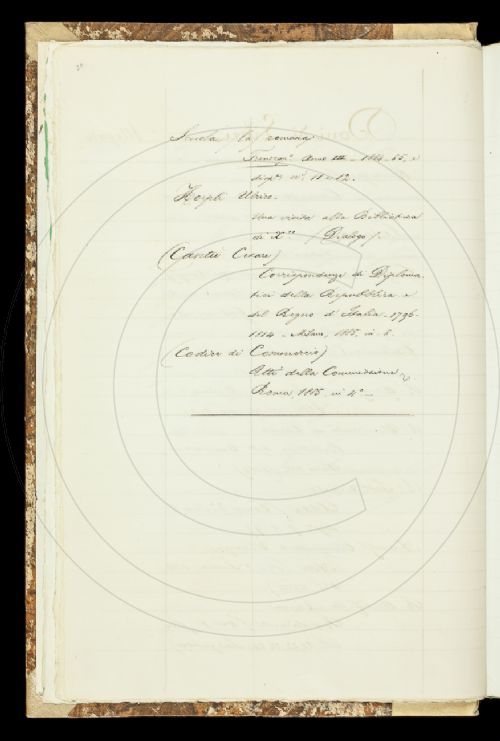 Scuola
romana
Anno III - 1884-85, e
n.i 11 e 12.
Hoepli Ulrico.
Una visita alla Biblioteca
di
(Dialogo).
(Cantù Cesare)
Corrispondenze di Diploma-
tici della Repubblica e
del Regno d'Italia. 1796-
1814 - Milano, 1885, in 8.
(Codice di Commercio)
Atti della Commissione
Roma, 1885, in 4° -